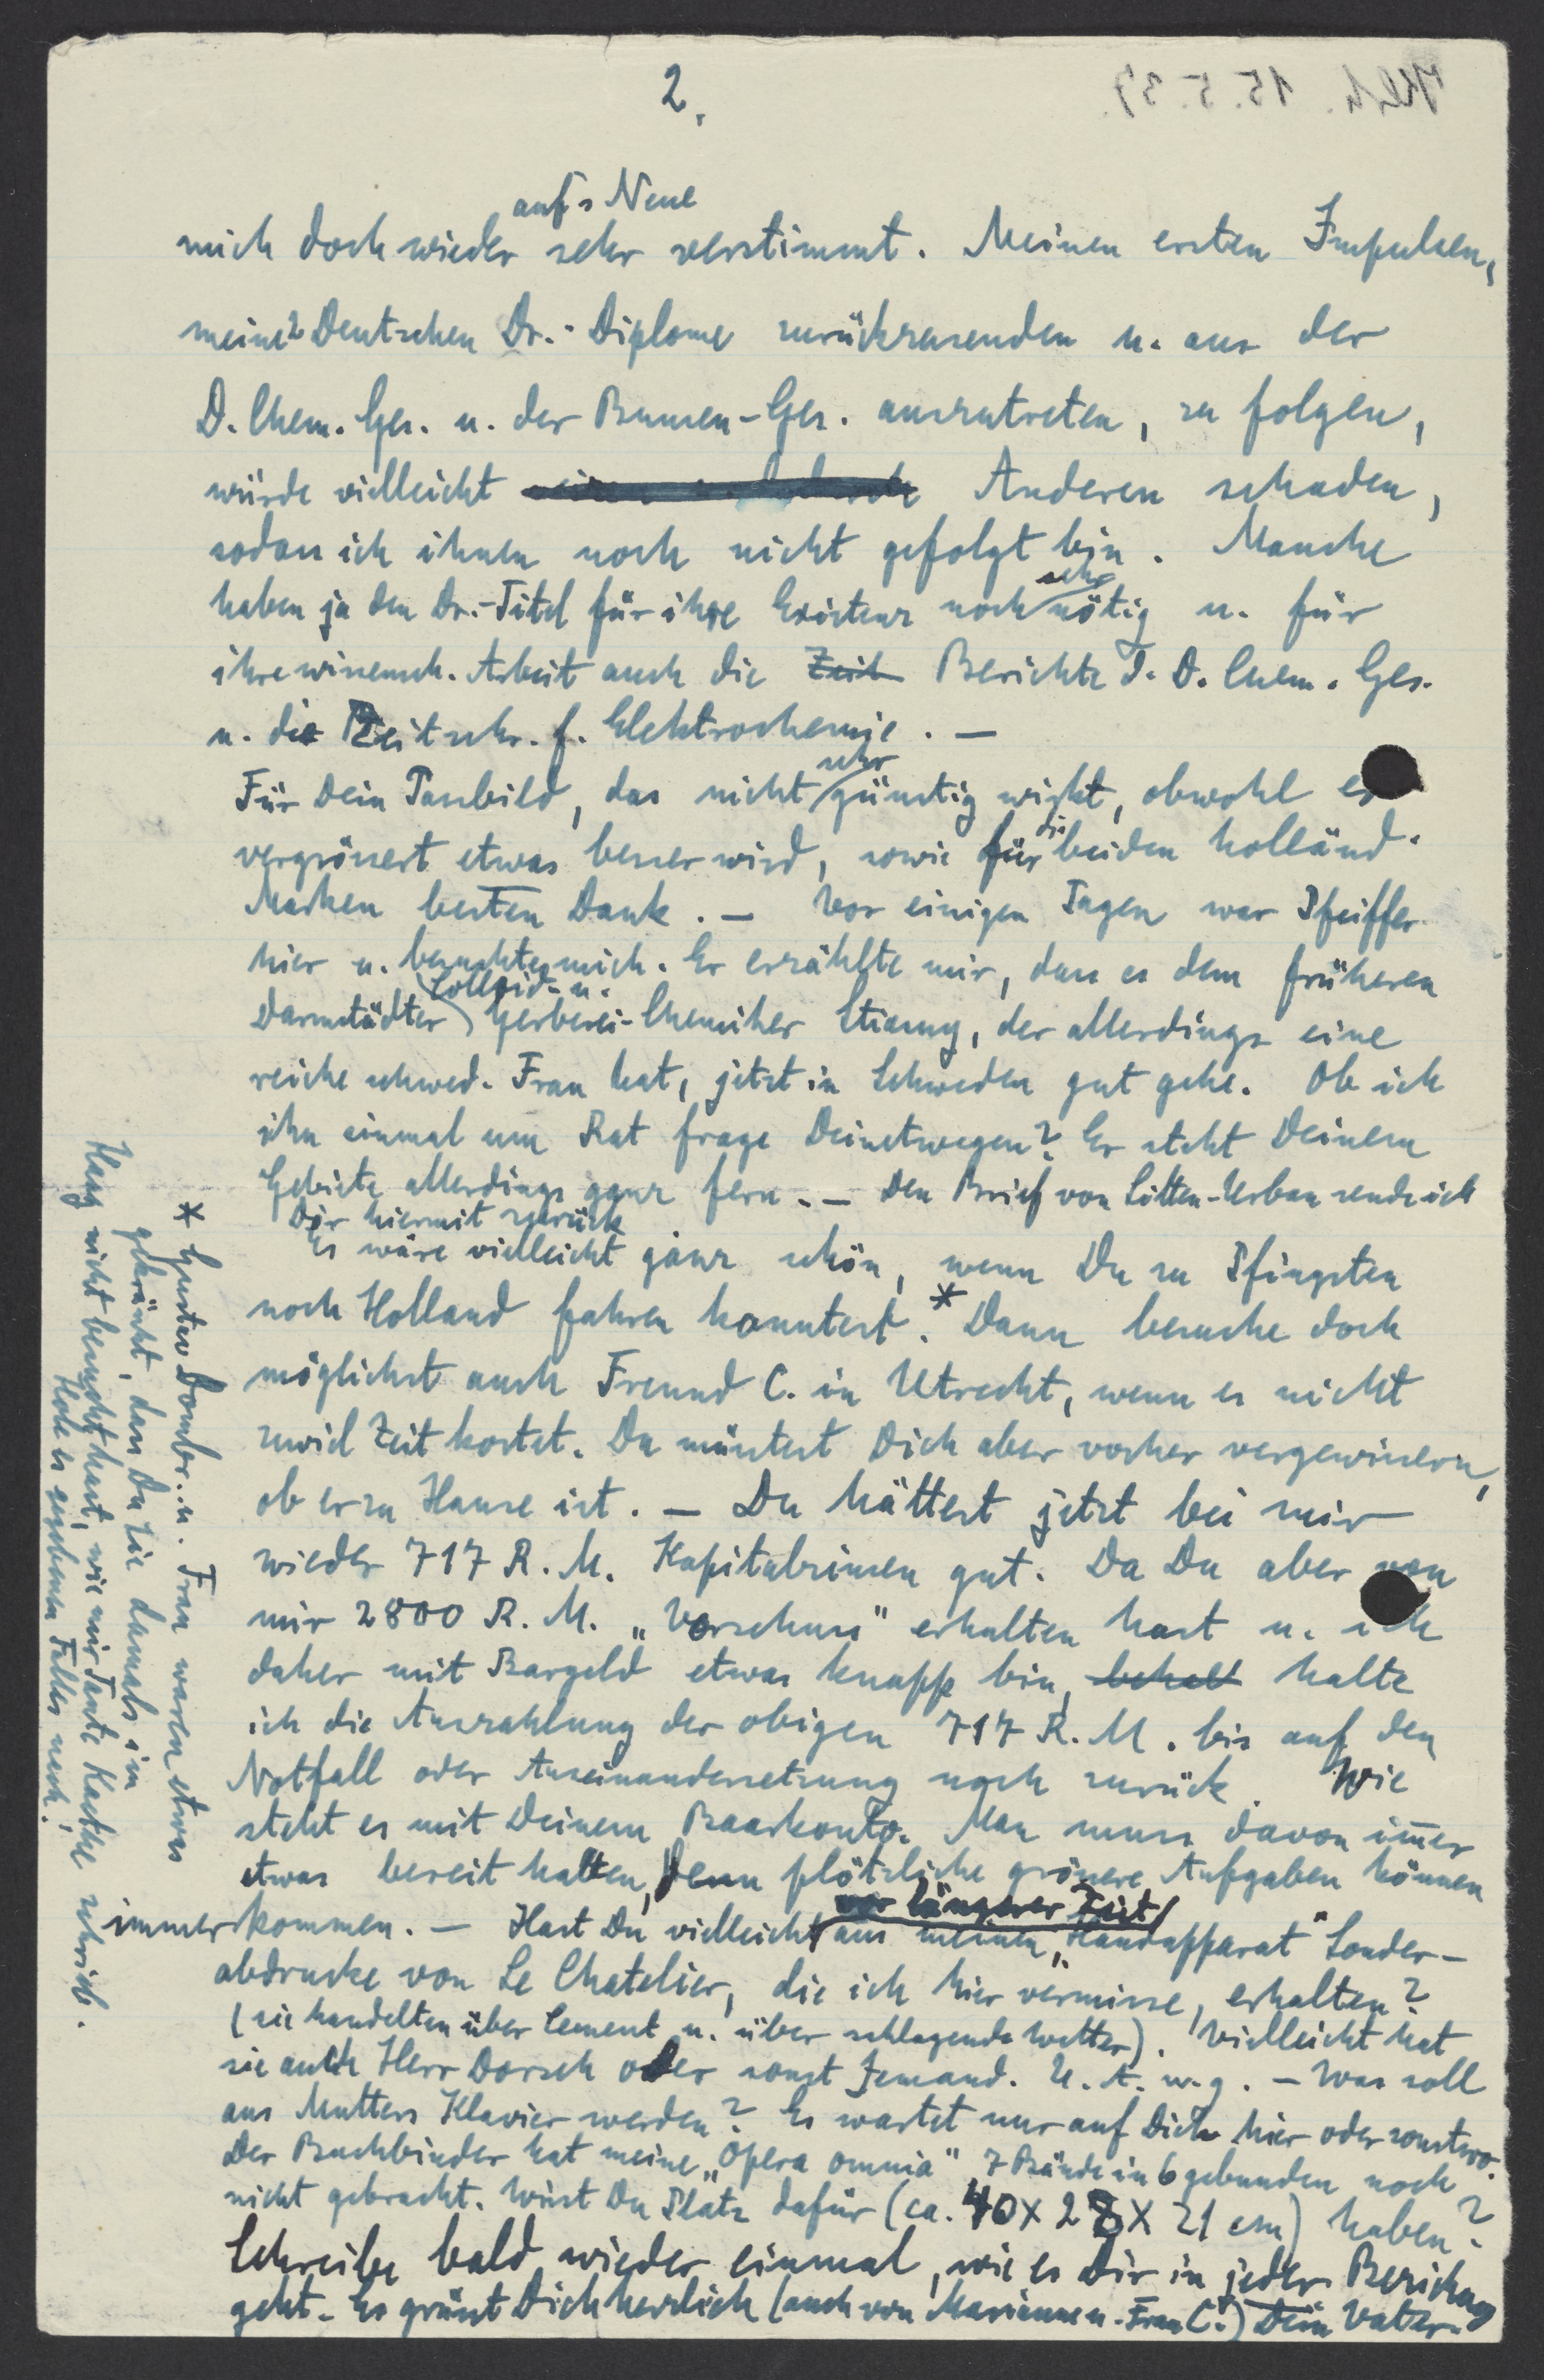 2.
auf's Neue
mich doch wieder sehr verstimmt. Meinen ersten Impulsen,
meine 2 Deutschen Dr.-Diplome zurückzusenden u. aus der
D. Chem. Ges. u. der Bunsen-Ges. auszutreten, zu folgen,
würde vielleicht Anderen schaden,
sodass ich ihnen noch nicht gefolgt bin. Manche
haben ja den Dr.-Titel für ihre Existenz noch sehr nötig u. für
ihre wissensch. Arbeit auch die Zeit Berichte d. D. Chem. Ges.
u. die Zeitschr. f. Elektrochemie. —
Für Dein Passbild, das nicht sehr günstig wirkt, obwohl es
vergrössert etwas besser wird, sowie für die beiden holländ.
Marken besten Dank. — Vor einigen Tagen war Pfeiffer
hier u. besuchte mich. Er erzählte mir, dass es dem früheren
Darmstädter Colloid- u. Gerberei-Chemiker Stiasny, der allerdings eine
reiche schwed. Frau hat, jetzt in Schweden gut gehe. Ob ich
ihn einmal um Rat frage Deinetwegen? Er steht Deinem
Gebiete allerdings ganz fern. — Den Brief von Litten-Urban sende ich
Dir hiermit zurück
Es wäre vielleicht ganz schön, wenn Du zu Pfingsten
nach Holland fahren könntest.* Dann besuche doch
möglichst auch Freund C. in Utrecht, wenn es nicht
zuviel Zeit kostet. Du müsstest Dich aber vorher vergewissern,
ob er zu Hause ist. — Du hättest jetzt bei mir
wieder 717 R.M. Kapitalzinsen gut. Da Du aber von
mir 2800 R.M. „Vorschuss" erhalten hast u. ich
daher mit Bargeld etwas knapp bin, behalt halte
ich die Auszahlung der obigen 717 R.M. bis auf den
Notfall oder Auseinandersetzung noch zurück. Wie
steht es mit Deinem Baarkonto. Man muss davon immer
etwas bereit halten, denn plötzliche grössere Aufgaben können
immer kommen. — Hast Du vielleicht vor längerer Zeit aus meinem „Handapparat" Sonder-
abdrucke von Le Chatelier, die ich hier vermisse, erhalten?
(sie handelten über Cement u. über schlagende Wetter). Vielleicht hat
sie auch Herr Dorsch oder sonst Jemand. U. A. w. g. — Was soll
aus Mutters Klavier werden? Es wartet nur auf Dich hier oder sonstwo.
Der Buchbinder hat meine „Opera omnia" 7 Bände in 6 gebunden noch
nicht gebracht. Wirst Du Platz dafür (ca. 40 X 28 X 21 cm) haben?
Schreibe bald wieder einmal, wie es Dir in jeder Beziehung
geht. Es grüsst Dich herzlich (auch von Marianne u. Frau C.) Dein Vater.
* Gustav Dombr. u. Frau waren etwas
gekränkt, dass Du sie damals im
Haag nicht besucht hast, wie mir Tante Kaethe schrieb.
Hole es gegebenen Falles nach.
Klch. 15.5.37.